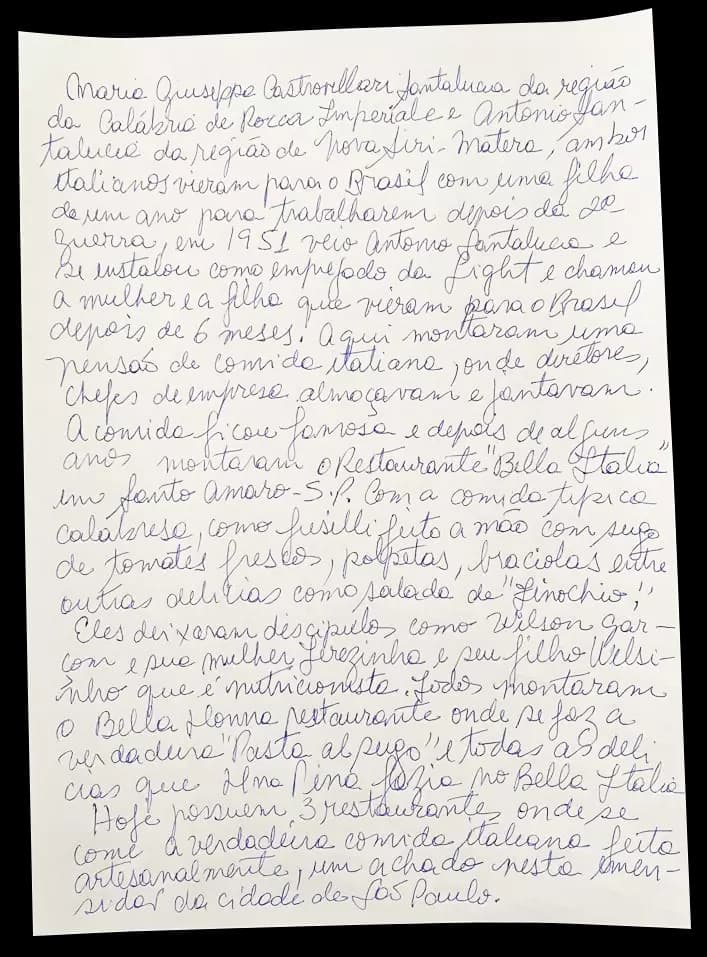 Maria Giuseppa Castrovillari Santalucia da região
da Calábria de Rocca Imperiale e Antonio San-
talucia da região de Nova Siri-Matera, ambos
italianos vieram para o Brasil com uma filha
de um ano para trabalharem depois da 2ª
guerra, em 1951 veio Antonio Santalucia e
se instalou como empregado da Light e chamou
a mulher e a filha que vieram para o Brasil
depois de 6 meses. Aqui montaram uma
pensão de comida italiana, onde diretores,
chefes de empresa almoçavam e jantavam.
A comida ficou famosa e depois de alguns
anos montaram o Restaurante "Bella Italia"
em Santo Amaro-S.P. Com a comida tipica
calabresa, como fusilli feito a mão com sugo
de tomates frescos, polpetas, braciolas entre
outras delicias como salada de "Finochio",
Eles deixaram discipulos como Wilson gar-
com e sua mulher Terezinha e seu filho Wilsi-
nho que é nutricionista. Todos montaram
o Bella Nonna restaurante onde se faz a
verdadeira "Pasta al sugo" e todas as deli
cias que Nna Pina fazia no Bella Italia
Hoje possuem 3 restaurante onde se
come a verdadeira comida italiana feita
artesanalmente, um achado nesta imen-
sidão da cidade de São Paulo.